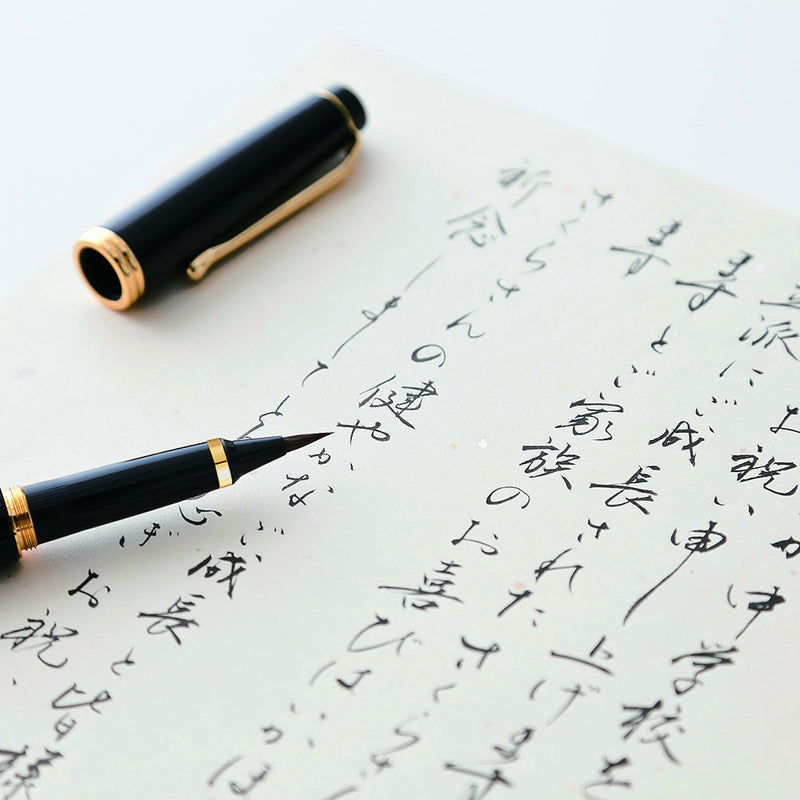 中学校を
お祝い申し上げます
立派にご成長されたさくらさ
ますとご家族のお喜びはいかほ
ます
さくらさんの健やかなご成長と皆様
祈念しまして
お祝